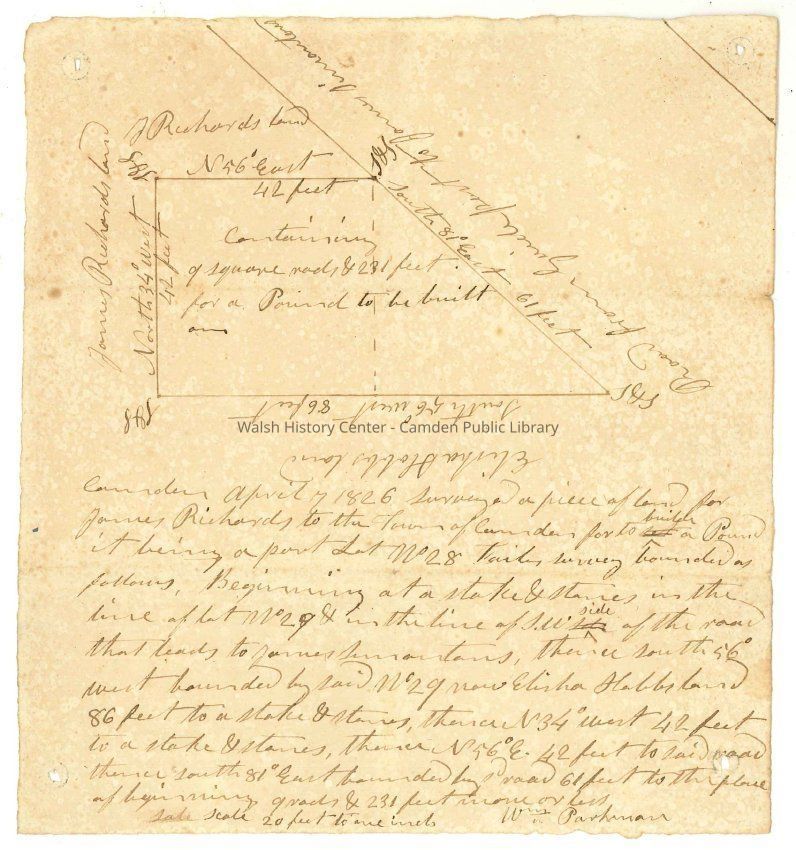 J Richards land
N 56° East
42 feet
S&S
S&S
James Richards land
North 34° West
42 feet
Containing
9 square rods & 231 feet.
for a Pound to be built
on
South 81° East 61 feet
Road from Guide post to James Simontons
S&S
S&S
South 56° west 86 feet
Walsh History Center - Camden Public Library
Elisha Hobbs land
Camden April 7 1826 surveyed a piece of land for
James Richards to the Town of Camden for to builde a Pound
it being a part Lot No 28 survey bounded as
follows, Beginning at a stake & stones in the
line of lot No 29 & in the line of S.W. side of the road
that leads to James Simontons, thence south 56°
west bounded by said No 29 now Elisha Hobbs land
86 feet to a stake & stones, thence N 34° west 42 feet
to a stake & stones, thence N 56° E. 42 feet to said road
thence south 81° East bounded by sd road 61 feet to the place
of beginning 9 rods & 231 feet more or less
scale 20 feet to one inch
Wm Parkman